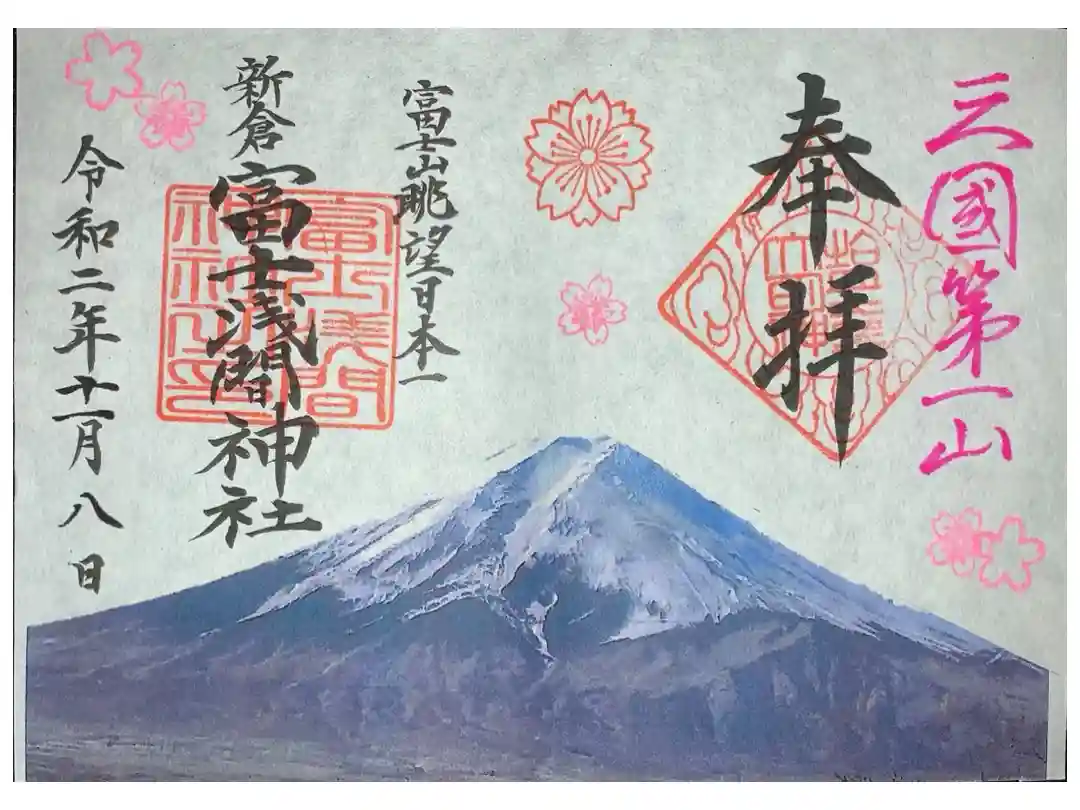 三國第一山
奉拝
富士山眺望日本一
新倉富士浅間神社
令和二年十一月八日
富士浅間
神社之印